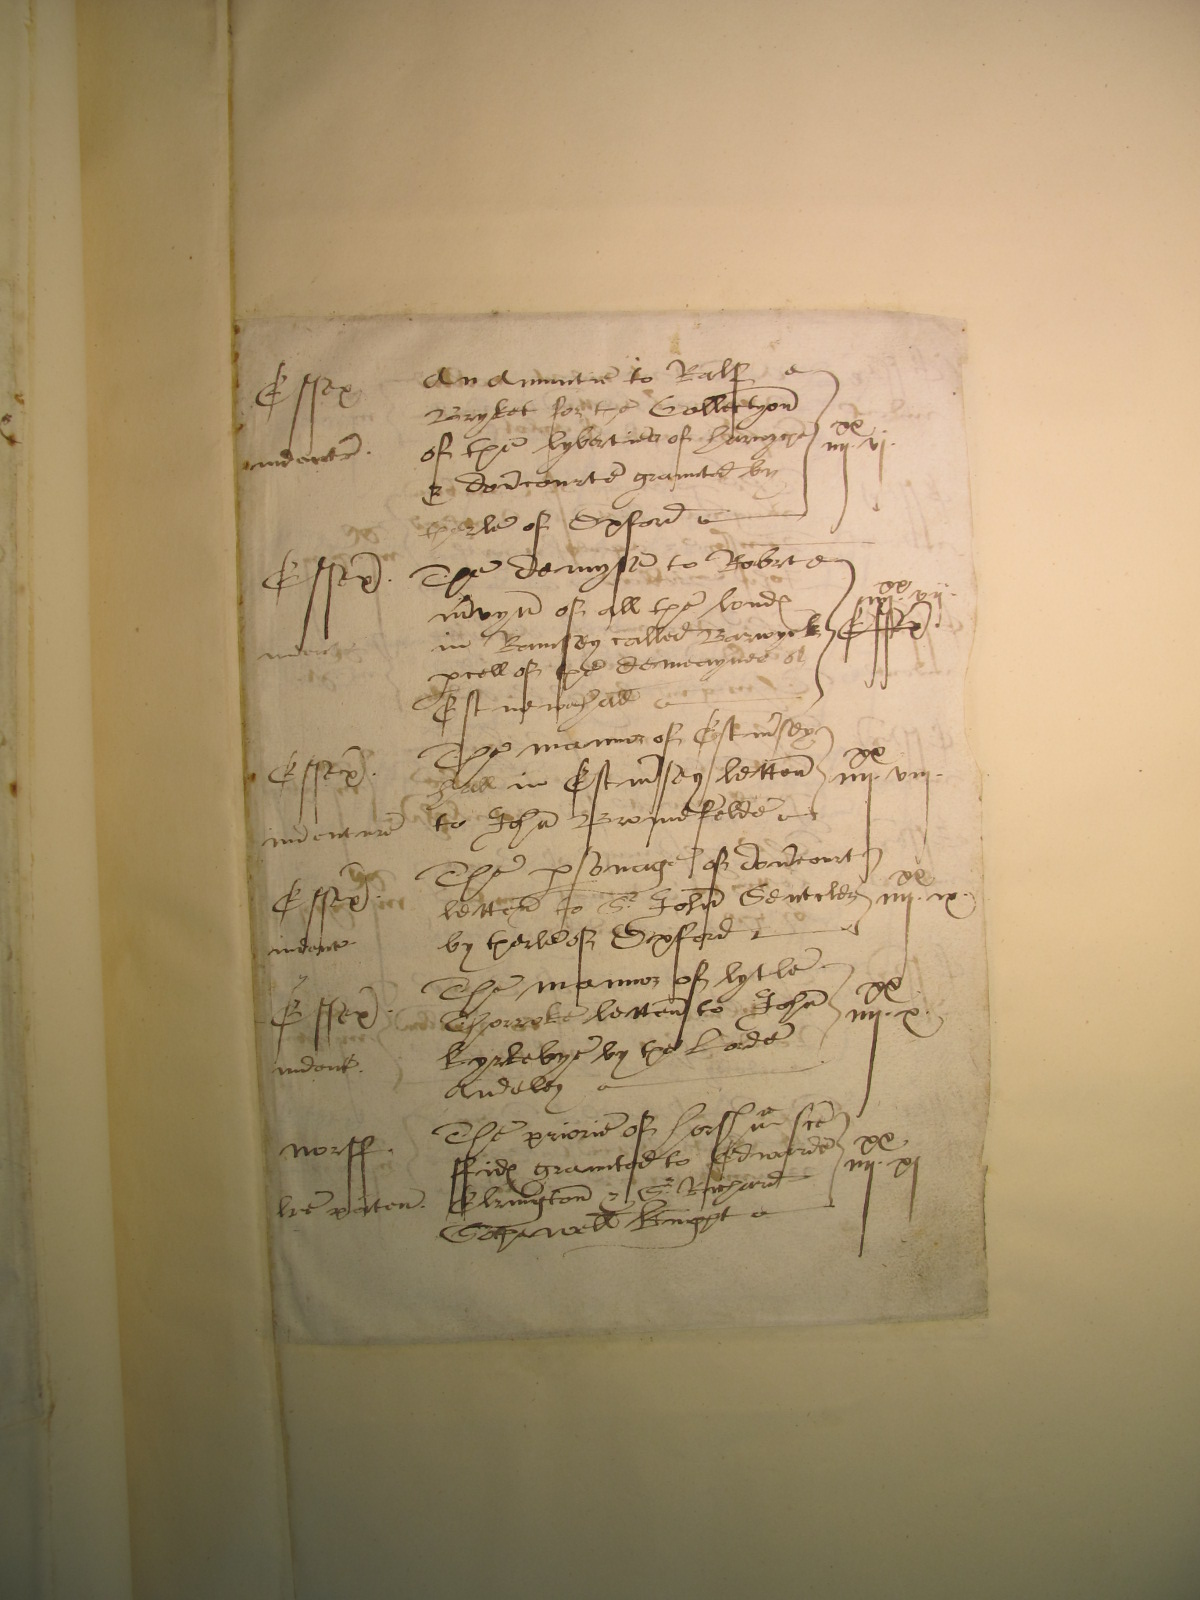 Essex
indentr̃.
An Annuitie to Ralf
Bryket for the Collectyon
of the lyberties of harwyche
& Doṽcourte graunted by
therle of Oxford
xx
iiij. vj.
Essex̃.
indent
The demyse to Robrte
of all the lond
in Ramsey called Barwyck
pcell of the demeaynes of
Est newhall
xx
iiij. vij.
Essex̃.
Essex̃.
indenture
The mannor of Est m̃sey
hall in Est m̃sey letten
to John Bromefelde
xx
iiij. viij.
Essex̃.
indent
The psonage of doṽcourt
letten to Sr John Sentcler
by therle of Oxford
xx
iiij. ix.
Essex̃.
indent.
The mannor of lytle
Thorroke letten to John
Kyrkebye by the Lorde
Audeley
xx
iiij. x.
norff.
lrẽ paten.
The priorie of horshm̃ sc̃e
ffid graunted to Edwarde
Elrington & Sr Richard
Sothwell Knyght
xx
iiij. xj